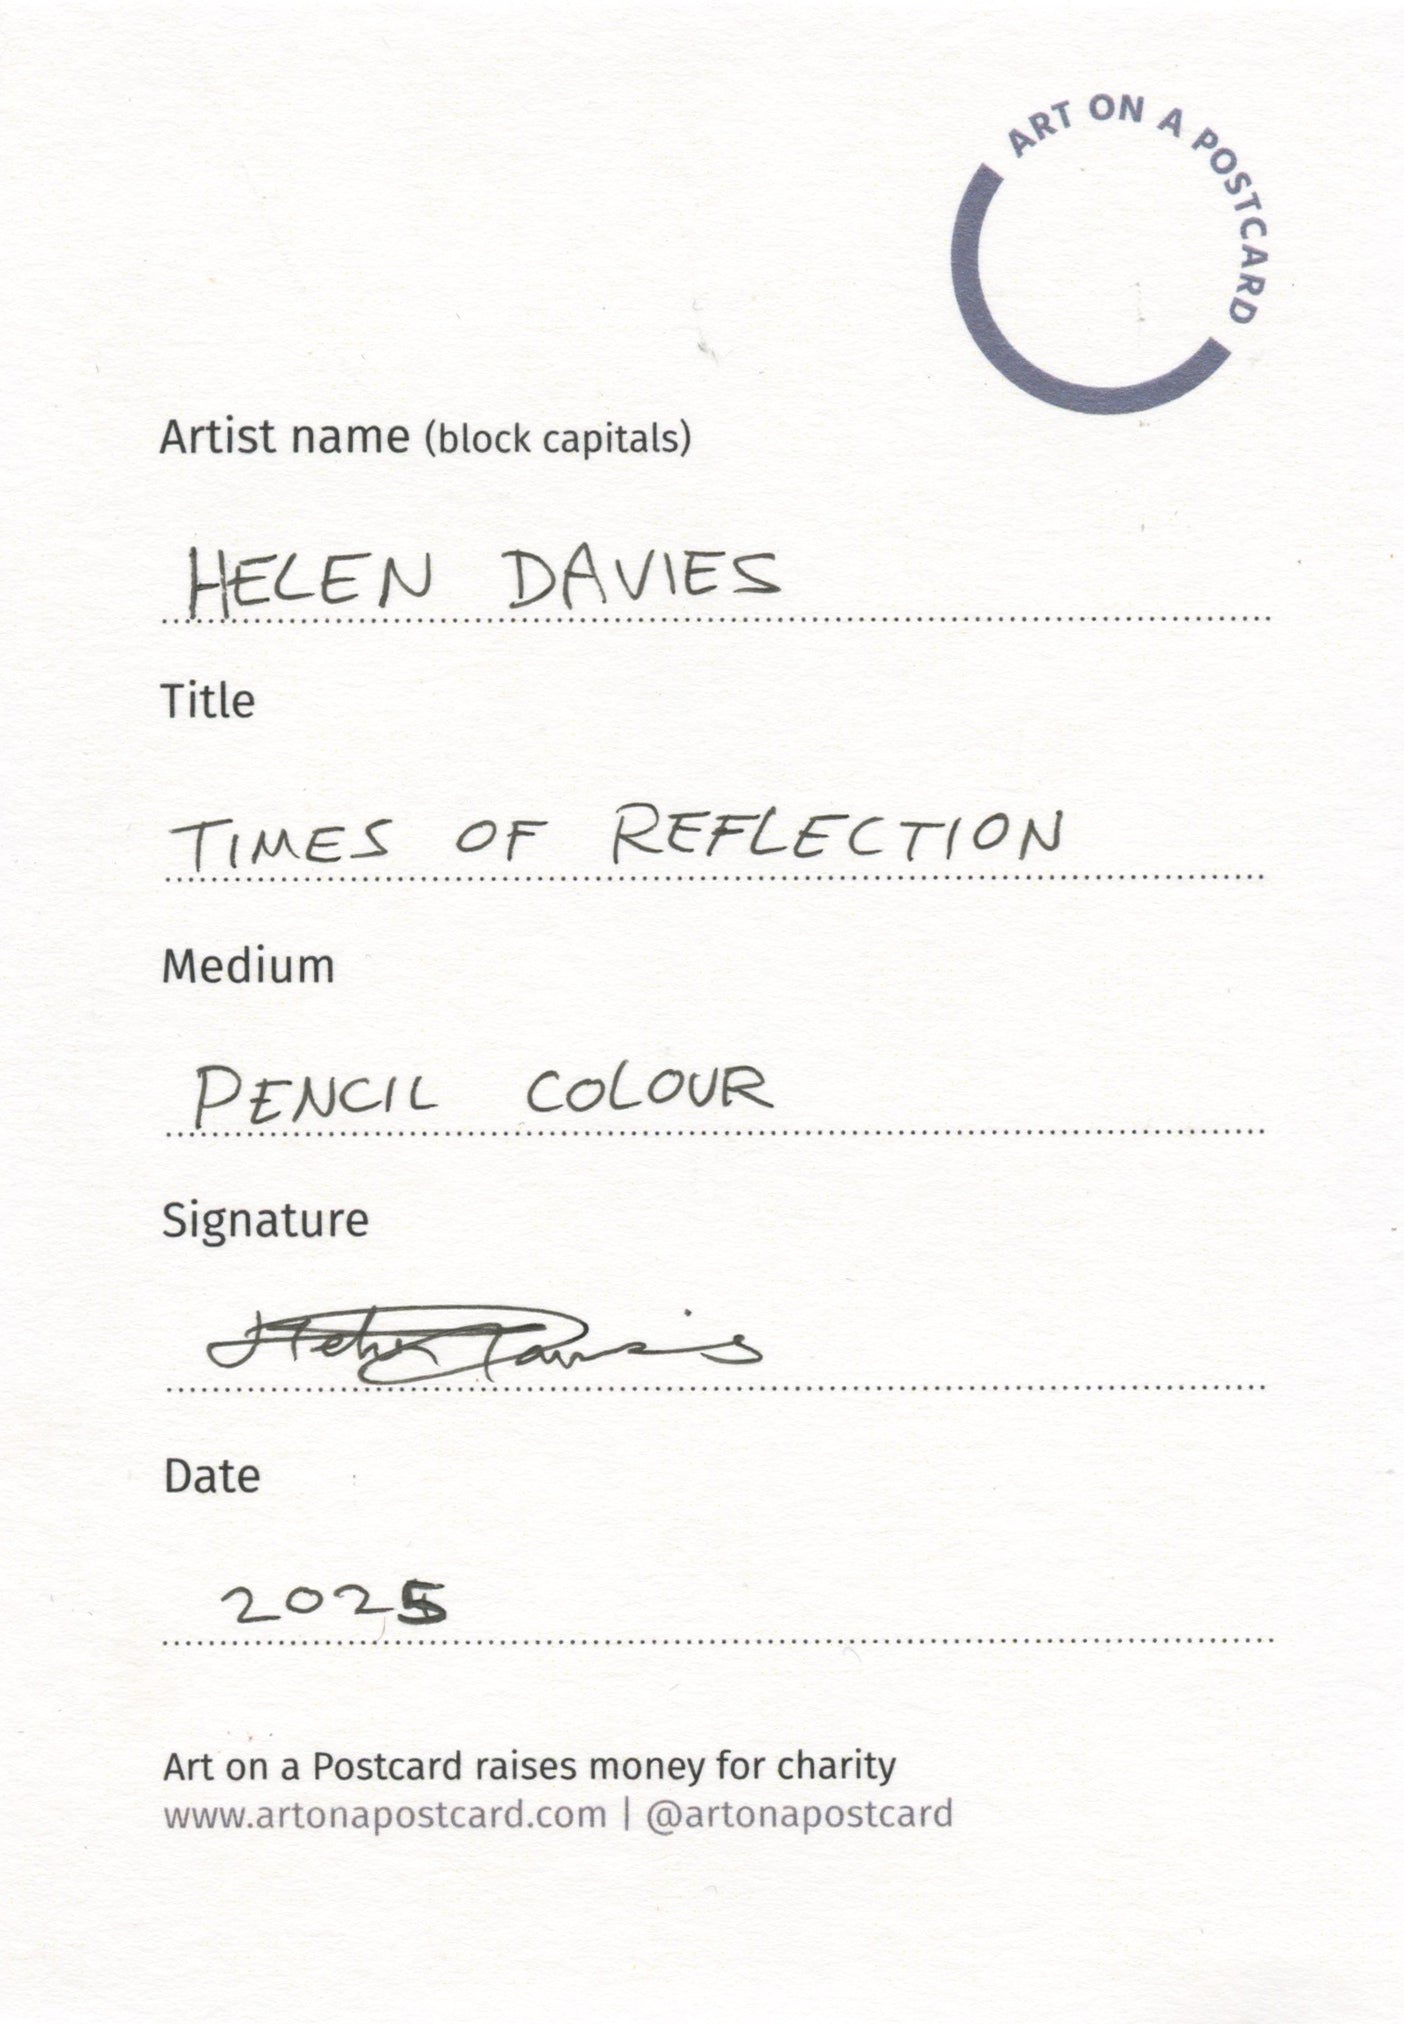 ART ON A POSTCARD
Artist name (block capitals)
HELEN DAVIES
Title
TIMES OF REFLECTION
Medium
PENCIL COLOUR
Signature
Helen Davies
Date
2025
Art on a Postcard raises money for charity
www.artonapostcard.com | @artonapostcard